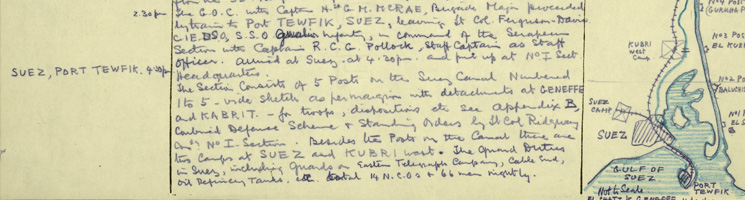 2.30pm
The G.O.C. with Captn H. G. M. MCRAE, Brigade Major proceeded
by train to Port TEWFIK, SUEZ, leaving Lt Col. Ferguson-Davie
C.I.E. DSO, S.S.O Infantry, in command of the Serapeum
Section with Captain R.C.G. Pollock, Staff Captain as Staff
Officer. Arrived at Suez at 4.30pm. and put up at No I Sect.
SUEZ, PORT TEWFIK. 4.30pm
Headquarters.
The Section consists of 5 Posts on the Suez Canal Numbered
1 to 5 - vide sketch as per margin with detachments at GENEFFE
and KABRIT. - for troops, dispositions etc see Appendix B,
Combined Defence Scheme & Standing Orders by Lt Col Ridgeway
No I. Section. Besides the Posts on the Canal there are
two Camps at SUEZ and KUBRI West. The Guard Duties
in Suez, including Guards on Eastern Telegraph Company, Cable End,
Oil Refinery Tanks, etc. total 14 N.C.Os & 66 men nightly.
No 4 POST
No 3 POST
EL KUBRI
KUBRI
West
Camp.
No 2 POST
BALUCHIS
SUEZ
CAMP
No 1
SUEZ
GULF OF
SUEZ
Not to Scale
PORT
TEWFIK